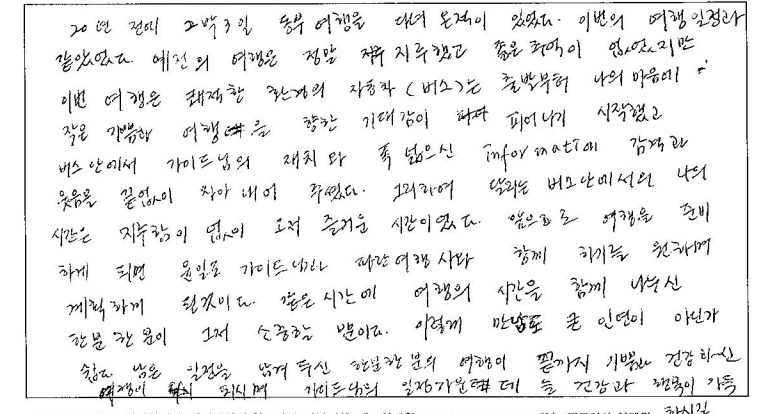 20년 전에 2박3일 동부여행을 다녀 온적이 있었다. 이번의 여행일정과
같았었다. 예전의 여행은 정말 지루했고 좋은 추억이 없었었지만
이번 여행은 쾌적한 환경의 자동차(버스)는 출발부터 나의 마음에
작은 기쁨과 여행을 향한 기대감이 피어나기 시작했고
버스 안에서 가이드님의 재치와 폭 넓으신 information 감격과
웃음을 끝없이 자아내어 주셨다. 그리하여 달리는 버스안에서의 나의
시간은 지루함이 없이 오직 즐거운 시간이었다. 앞으로도 여행을 준비
하게 되면 윤일로 가이드님과 파란여행사와 함께 하기를 원하며
계획하게 될것이다. 같은 시간에 여행의 시간을 함께 나누신
한분 한분이 그저 소중할 뿐이다. 이렇게 만남도 큰 인연이 아닌가
싶다 남은 일정을 남겨 두신 한분한분의 여행이 끝까지 기쁨과 건강하신
여행이 되시며 가이드님의 일정가운데 늘 건강과 행복이 가득
하시길